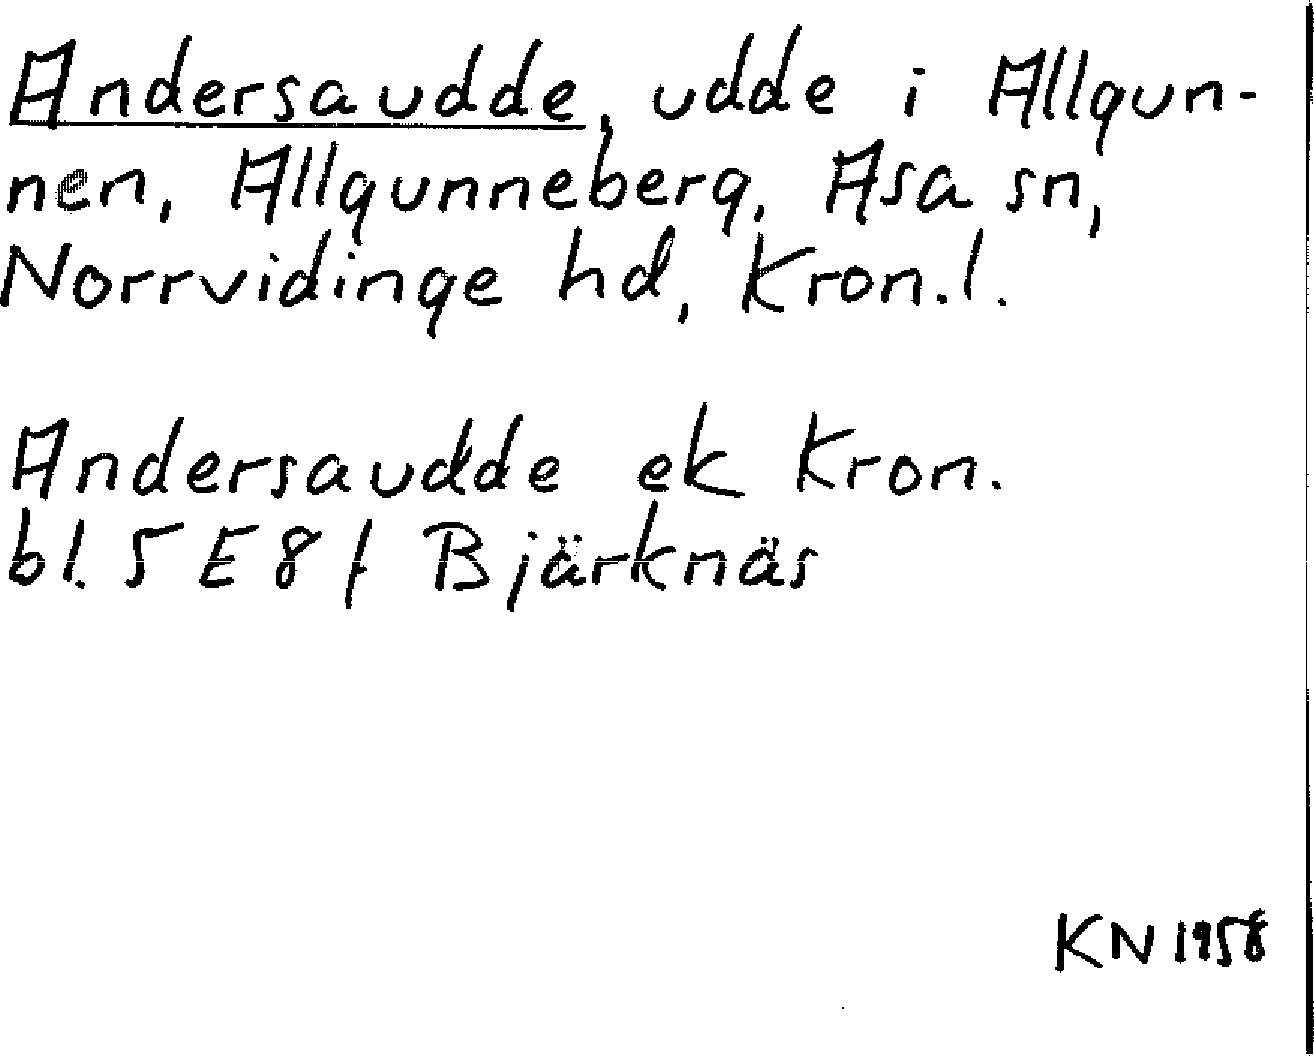 Andersaudde, udde i Allgun-
nen, Allgunneberg, Asa sn,
Norrvidinge hd, Kron.l.
Andersaudde ek Kron.
bl. 5 E 8 f Bjärknäs
KN 1958